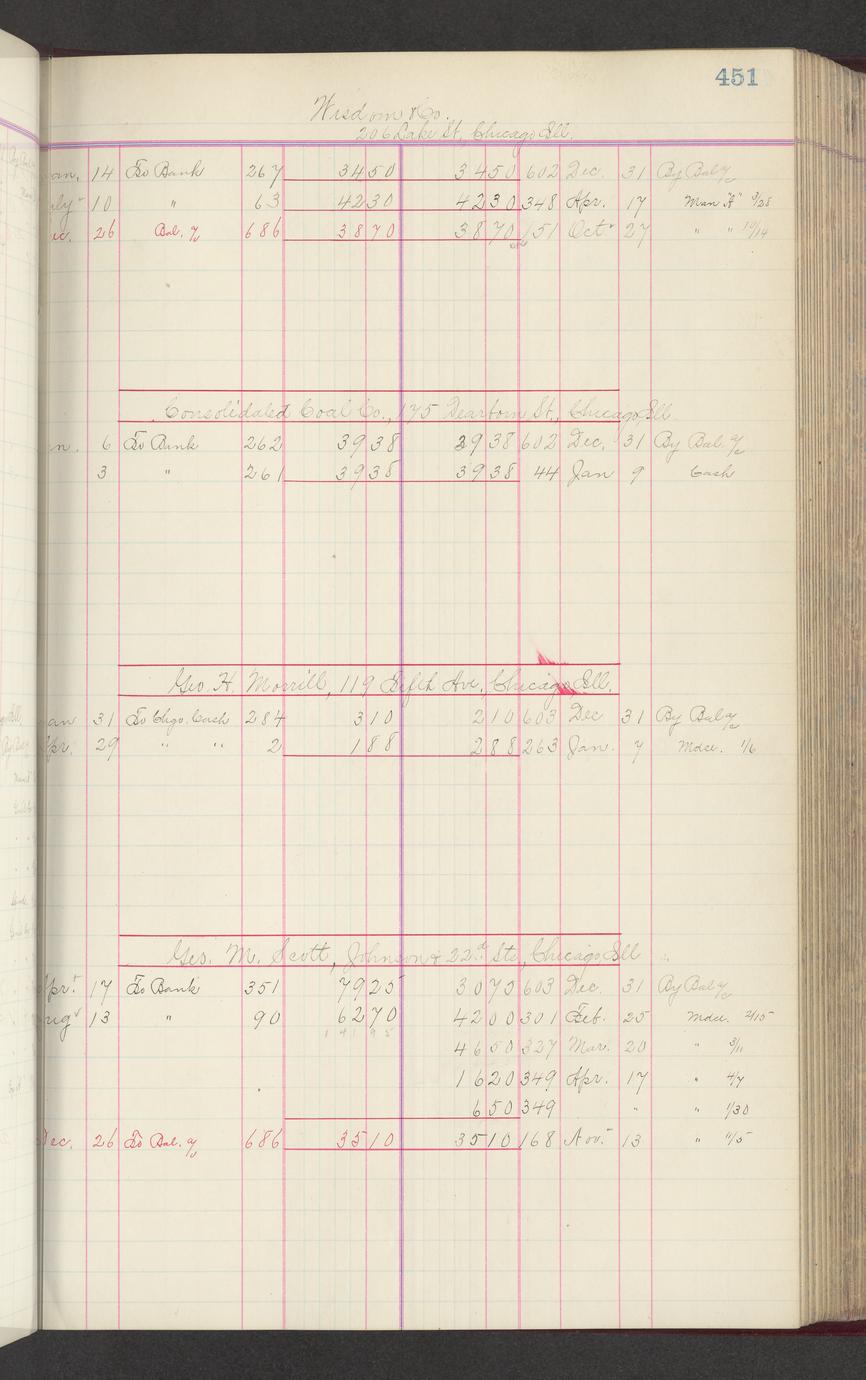 451
Wisdom & Co.
206 Lake St, Chicago Ill.
an. 14 To Bank 267 3450 3450 602 Dec. 31 By Bal a/c
uly 10 " 63 4230 4230 348 Apr. 17 Man "A" 3/28
ec. 26 Bal. a/c 686 3870 3870 151 Oct 27 " " 10/14
Consolidated Coal Co., 175 Dearborn St, Chicago, Ill.
n. 6 To Bank 262 3938 3938 602 Dec. 31 By Bal. a/c
3 " 261 3938 3938 44 Jan 9 Cash
Geo. H. Morrill, 119 Fifth Ave, Chicago, Ill.
an 31 To Chgo. Cash 284 310 210 603 Dec 31 By Bal a/c
Apr. 29 " " 2 188 288 263 Jan. 7 Mdse. 1/6
Geo. M. Scott, Johnson & 22d Sts, Chicago, Ill
Apr. 17 To Bank 351 7925 3075 603 Dec. 31 By Bal a/c
Aug 13 " 90 6270 4200 301 Feb. 25 Mdse. 2/15
14195
4650 327 Mar. 20 " 3/11
1620 349 Apr. 17 " 4/7
650 349 " " 1/30
Dec. 26 To Bal. a/c 686 3510 3510 168 Nov. 13 " 11/5